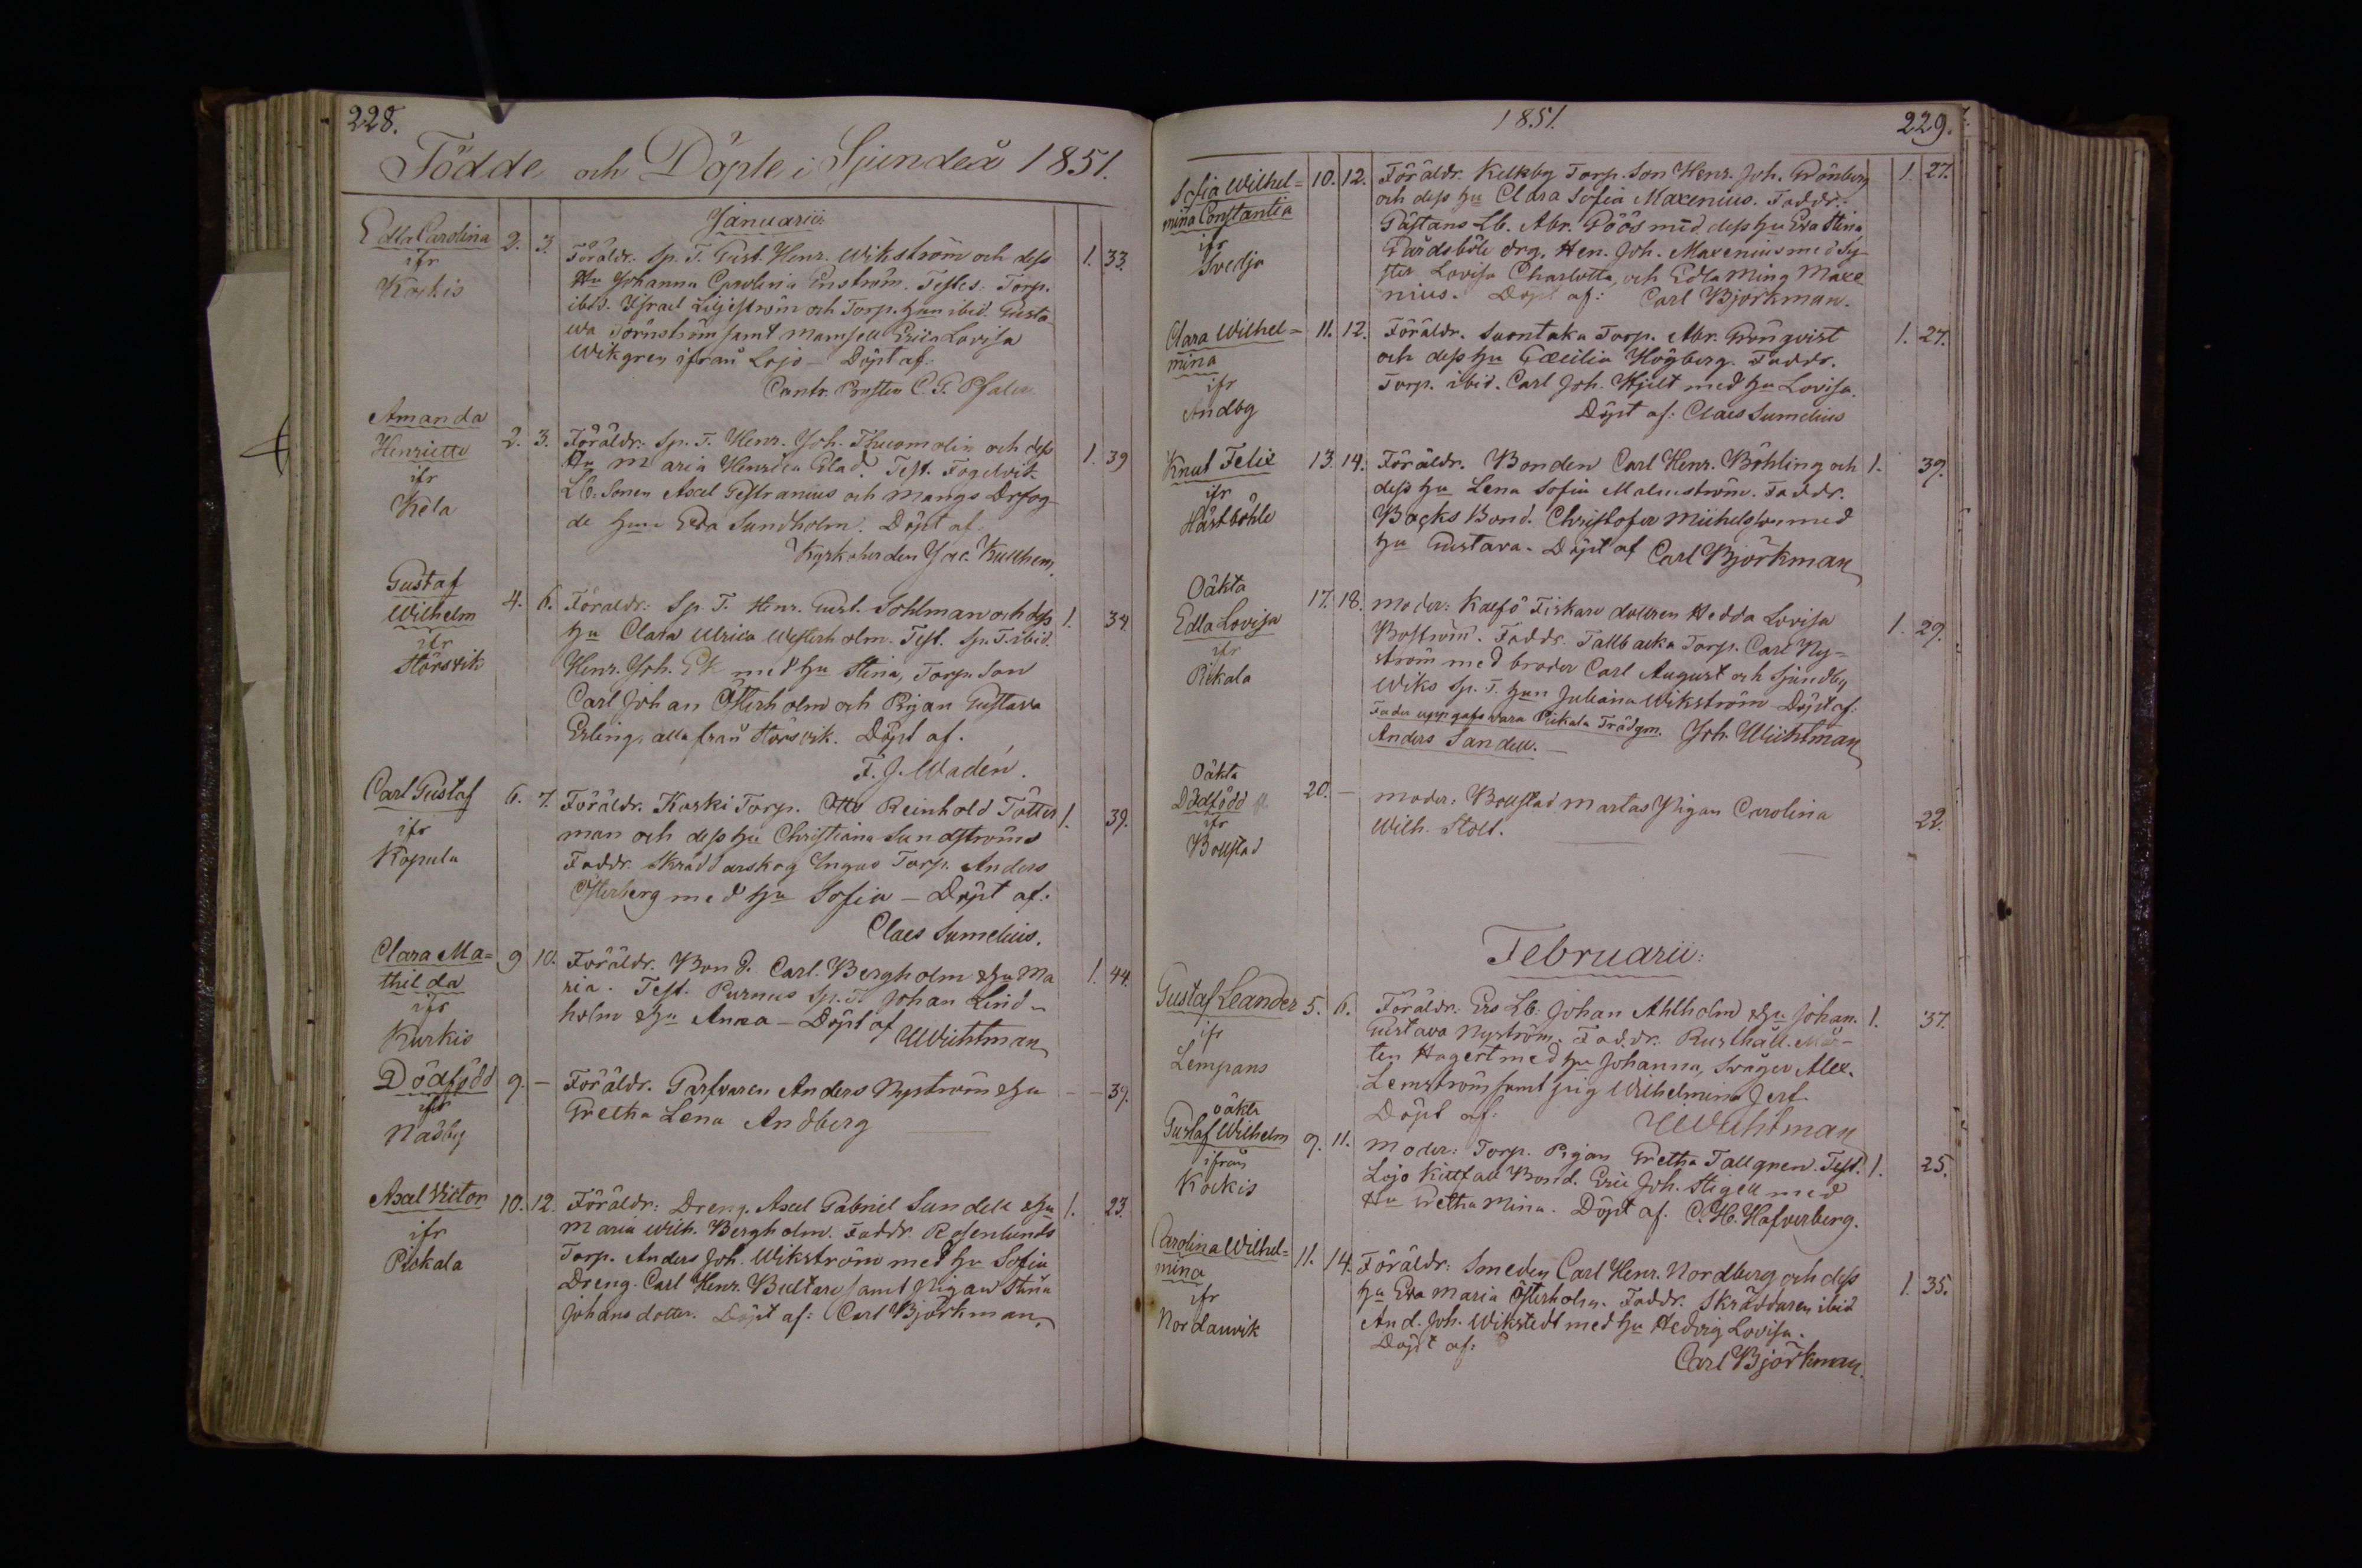 228.
Födde och Döpte i Sjundeå 1851.
Januarii:
Edla Carolina
ifr
Kockis
2. 3.
Föräldr: Sp. T. Gust. Henr. Wikström och dess
Hu Johanna Carolina Enström. Testes: Torp.
ibid. Israel Liljeström och Torp. hun ibid. Gusta
wa Törnström samt Mamsell Erica Lovisa
Wikgren ifrån Lojo – Döpt af.
Contr. Prosten C. G.
1. 33.
Amanda
Henriette
ifr
Kela
2. 3.
Föräldr: Sp. T. Henr. Joh. Thuomolin och dess
Hu Maria Henrica Glad. Test. Fogelvik
Lb: Sonen Axel Gestranius och Mangs Drfog
de hun Eva Sundholm. Döpt af
Kyrkoherden Jac. Kullhem.
1. 39
Gustaf
Wilhelm
ifr
Störsvik
4. 6.
Föräldr: Sp. T. Henr. Gust. Sohlman och dess
hu Clara Ulrica Westerholm. Test. Sp. T. ibid.
Henr. Joh. Ek med hu Stina, Torp. Son
Carl Johan Österholm och Pigan Gustava
Erling, alla från Störsvik. Döpt af.
F. J. Wadén.
1. 34.
Carl Gustaf
ifr
Kopula
6. 7.
Föräldr. Koski Torp. Otto Reinhold Totter
man och dess hu Christiana Sundströms
Faddr. Skräddarskog Ingas Torp. Anders
Österberg med hu Sofia – Döpt af:
Claes Sumelius.
1. 39.
Clara Ma=
thilda
ifr
Kurkis
9 10.
Föräldr. Bond. Carl Bergholm & hu Ma
ria. Test. Purnus Sp. T. Johan Lind-
holm & hu Anna – Döpt af
Wichtman
1. 44.
Dödfödd
ifr
Näsby
9. –
Föräldr. Garfvaren Anders Nyström & hu
Gretha Lena Andberg
– – 39.
Axel Victor
ifr
Pickala
10. 12.
Föräldr: Dreng. Axel Gabriel Sundell & hu
Maria Wilh. Bergholm. Faddr. Rosenlunds
Torp. Anders Joh. Wikström med hu Sofia
Dreng. Carl Henr. Bultare samt Pigan Stina
Johansdotter. Döpt af: Carl Björkman.
1. 23.
1851.
229.
Sofia Wilhel=
mina Constantia
ifr
Svedja
10. 12.
Föräldr. Kelkby Torp. Son Henr. Joh. Grönberg
och dess hu Clara Sofia Maxenius. Faddr.
Gästans Lb. Abr. Göös med dess hu Eva Stina
Gårdsböle drg. Hen. Joh. Maxenius med Sy
ster Lovisa Charlotta, och Edla Mina Maxe
nius. Döpt af: Carl Björkman.
1. 27.
Clara Wilhel=
mina
ifr
Andby
11. 12.
Föräldr. Suontaka Torp. Abr. Grönqvist
och dess hu Cæcilia Högberg. Faddr.
Torp. ibid. Carl Joh. Hjelt med hu Lovisa.
Döpt af: Claes Sumelius
1. 27.
Knut Felix
ifr
Hästböhle
13. 14.
Föräldr. Bonden Carl Henr. Böhling och
dess hu Lena Sofia Malmström. Faddr.
Backs Bond. Christofer Michelsson med
hu Gustava. Döpt af Carl Björkman
1. 39.
Oäkta
Edla Lovisa
ifr
Pikala
17. 18.
Moder: Kalfö Fiskare dottren Hedda Lovisa
Boström. Faddr. Tallbacka Torp. Carl Ny=
ström med broder Carl August och Sjundby
Wiks Sp. T. hun Juliana Wikström Döpt af:
Fader uppgafs vara Pikala Trädgm. Joh. Wichtman
Anders Sandell. –
1. 29.
Oäkta
Dödfödd
ifr
Bollstad
20. –
Moder: Bollstad Martas Pigan Carolina
Wilh. Stolt.
22.
Februarii:
Gustaf Leander
ifr
Lempans
5. 6.
Föräldr: Ers Lb: Johan Ahlholm & hu Johan.
Gustava Nyström. Faddr. Rusthåll. Mår-
ten Hagert med hu Johanna, Svåger Alex.
Lemström samt pig Wilhelmina Jerf.
Döpt af: Wichtman
1. 37.
oäkta
Gustaf Wilhelm
ifrån
Kockis
9. 11.
Moder: Torp. Pigan Gretha Tallgren. Test.
Lojo Kittfall Bond. Eric Joh. Stigell med
Hu Gretha Mina. Döpt af. C. H. Hafverberg.
1. 25.
Carolina Wilhel=
mina
ifr
Nordanvik
11. 14.
Föräldr: Smeden Carl Henr. Nordberg och dess
hu Eva Maria Österholm. Faddr. Skräddaren ibid
And. Joh. Wikstedt med hu Hedvig Lovisa.
Döpt af:
Carl Björkman.
1. 35.